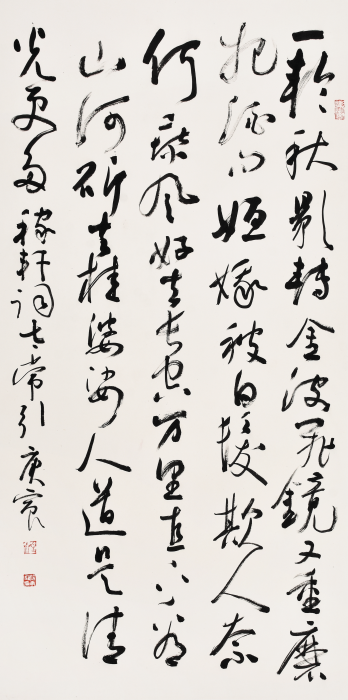 一輪秋影轉金波飛鏡又重磨
把酒问姮娥被白髮欺人奈
何乘风好去長空万里直下看
山河斫去桂婆娑人道是清
光更多稼軒词太常引庚寅